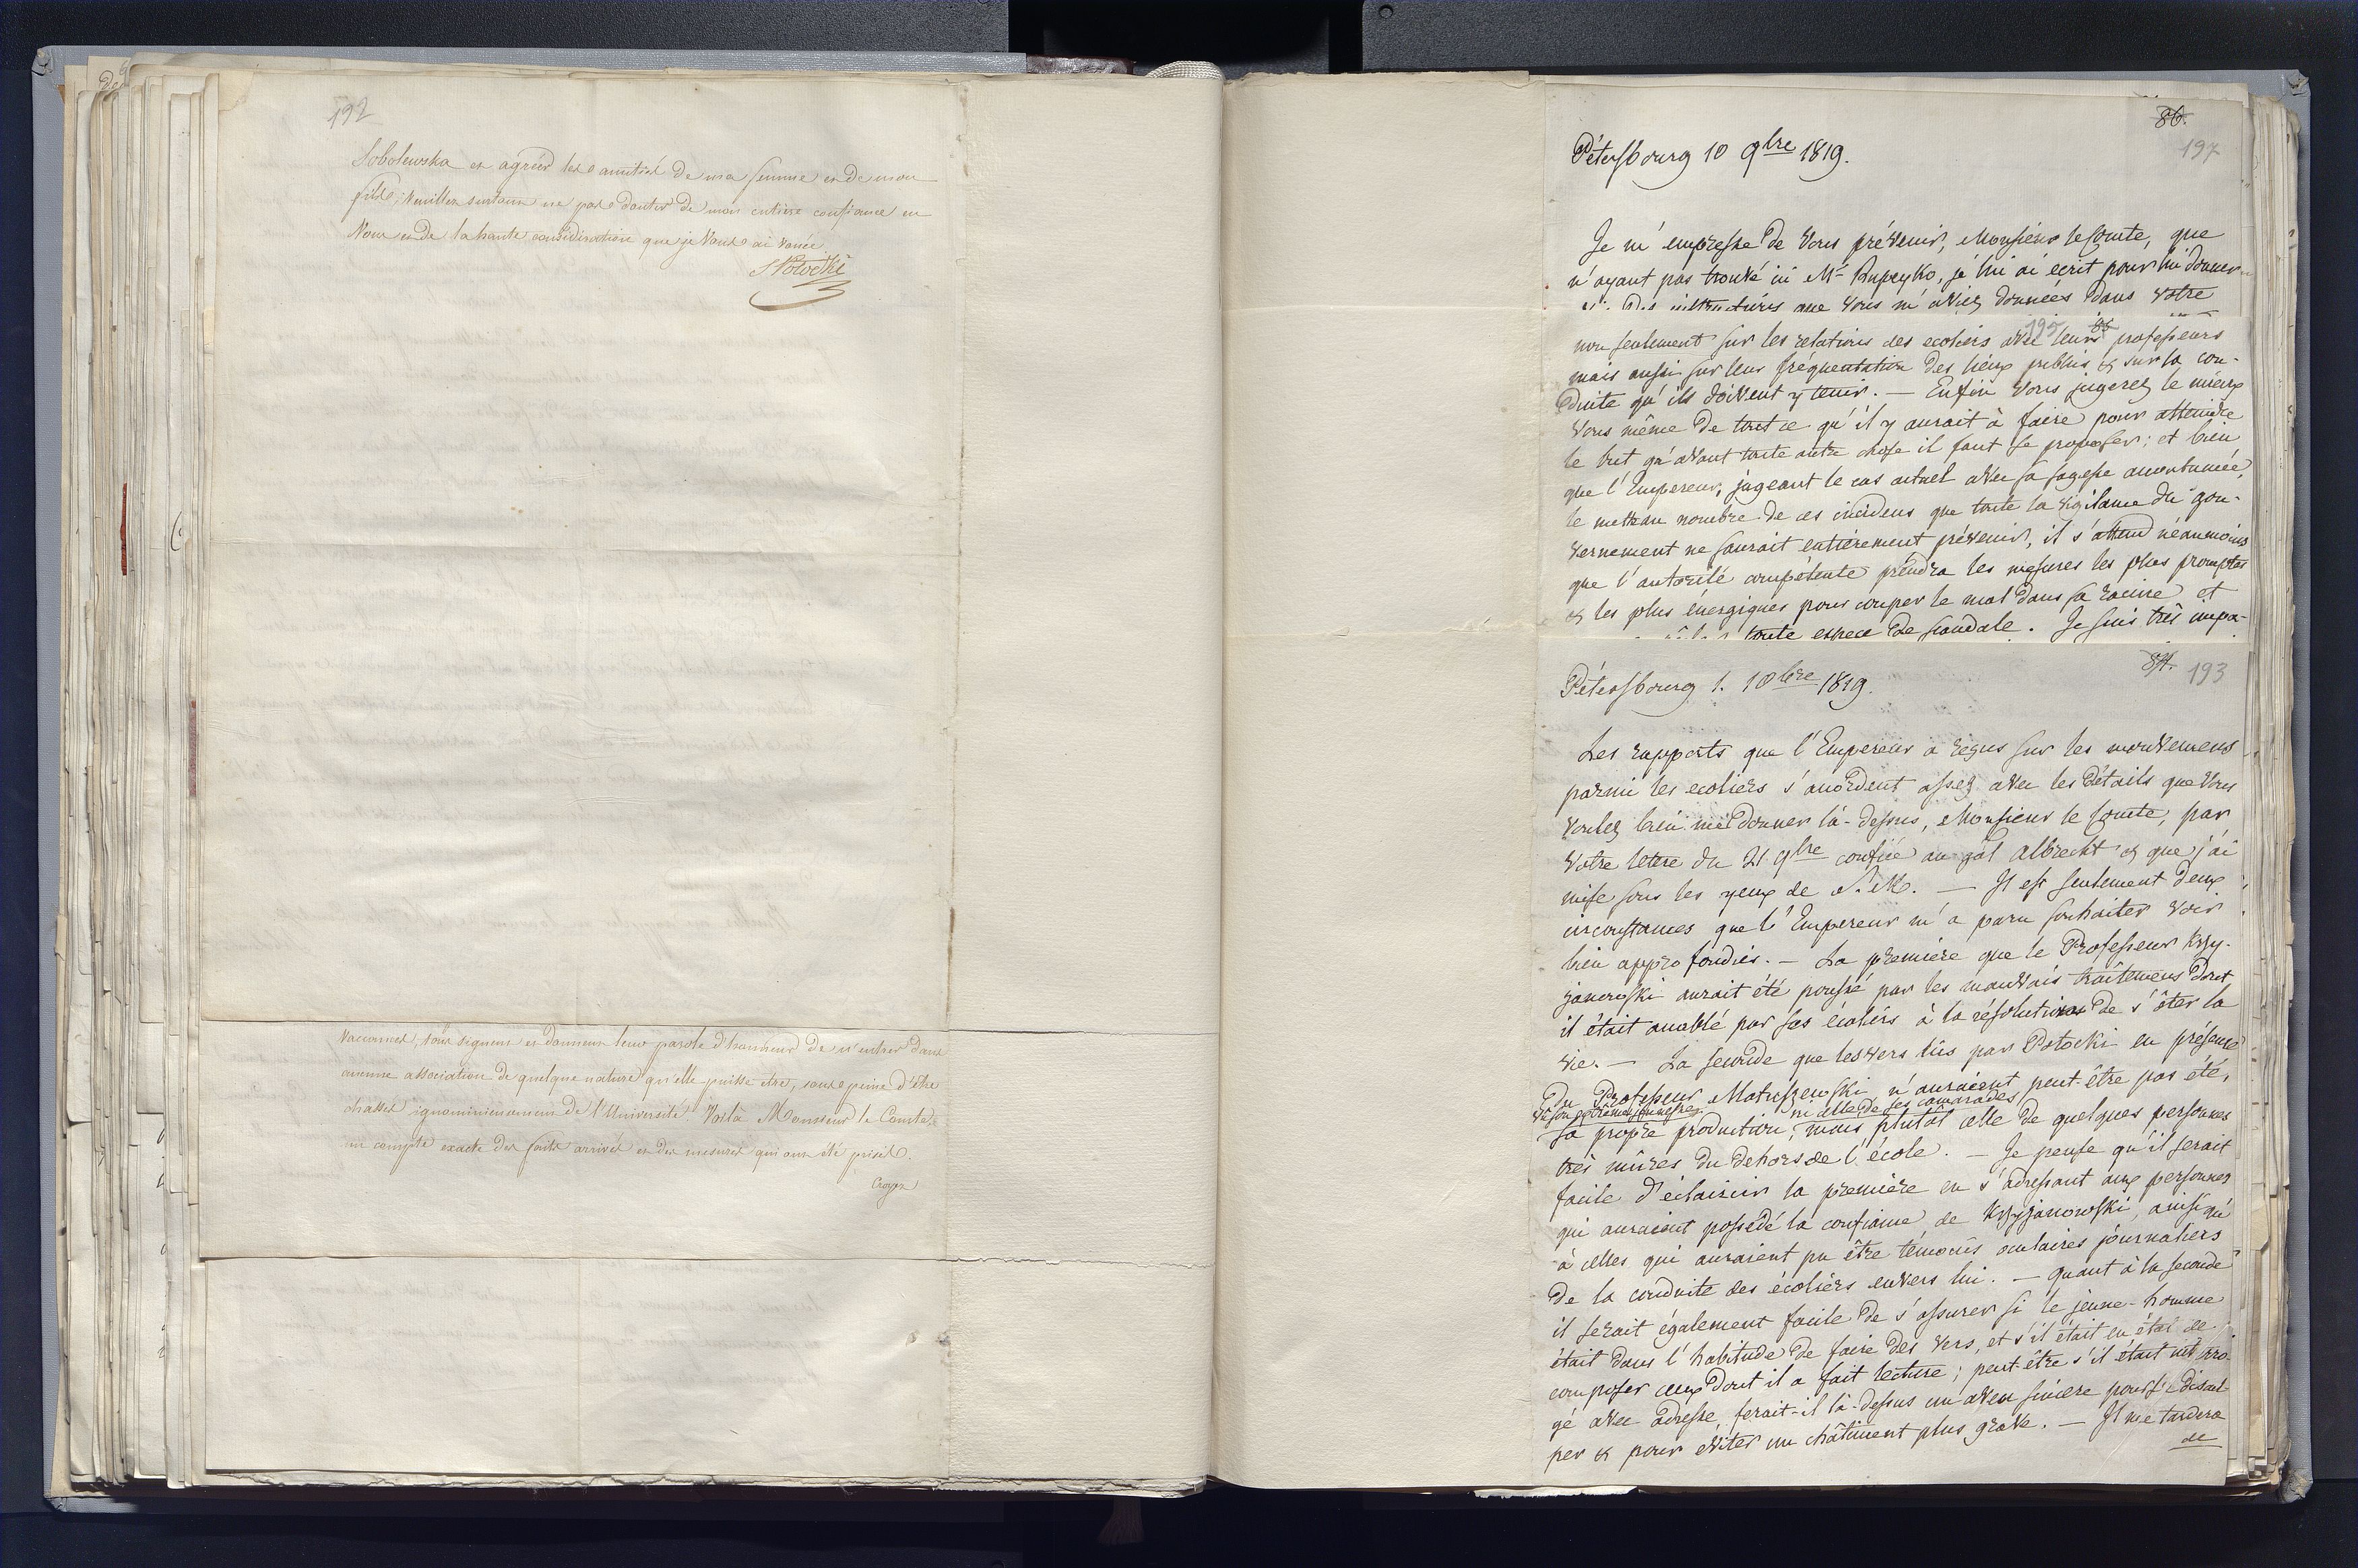 192
Sobolewska et agréer les amitiés de ma femme et de mon
fils; Veuillez surtout ne pas douter de mon entière confiance en
Vous et de la haute considération que je Vous ai vouée.
S. Potocki
vacances, tous signent et donnent leur parole d'honneur de n'entrer dans
aucune association de quelque nature qu'elle puisse etre, sous peine d'être
chassés ignominieusement de l'Université. Voilà Monsieur le Comte
un compte exacte des faits arrivés et des mesures qui ont été prises.
Croyez
86.
197
Pétersbourg 10 9bre 1819.
Je m'empresse de Vous prévenir, Monsieur le Comte, que
n'ayant pas trouvé ici Mr Rupeyko, je lui ai écrit pour lui donner
instructions que Vous m'aviez données dans Votre
195 85
non seulement sur les relations des ecoliers avec leurs professeurs
mais aussi sur leur fréquentation des lieux publics & sur la con-
duite qu'ils doivent y tenir. — Enfin Vous jugerez le mieux
Vous même de tout ce qu'il y aurait à faire pour atteindre
le but qu'avant toute autre chose il faut se proposer; et bien
que l'Empereur, jugeant le cas actuel avec sa sagesse accoutumée,
le mette au nombre de ces incidens que toute la vigilance du gou-
vernement ne saurait entièrement prévenir, il s'attend néanmoins
que l'autorité compétente prendra les mesures les plus promptes
& les plus énergiques pour couper le mal dans sa racine et
toute espece de scandale. Je suis très impa-
84. 193
Pétersbourg 1. 10bre 1819.
Les rapports que l'Empereur a reçus sur les mouvemens
parmi les ecoliers s'accordent assez avec les détails que Vous
voulez bien me donner là-dessus, Monsieur le Comte, par
Votre lettre du 21 9bre confiée au gal Albrecht & que j'ai
mise sous les yeux de S. M. — Il est seulement deux
circonstances que l'Empereur m'a paru souhaiter voir
bien approfondies. — La première que le Professeur Krzy-
janowski aurait été poussé par les mauvais traitemens dont
il était accablé par ses écoliers à la résolution de s'ôter la
vie. — La seconde que les vers lûs par Potocki en présence
du Professeur Matuszewski n'auraient peut-être pas été,
vu son extrême jeunesse, ni celle de ses camarades
sa propre production, mais plutôt celle de quelques personnes
très mûres du dehors de l'école. — Je pense qu'il serait
facile d'éclaircir la première en s'adressant aux personnes
qui auraient possédé la confiance de Krzyjanowski, ainsi qu'
à celles qui auraient pu être témoins oculaires journaliers
de la conduite des écoliers envers lui. — Quant à la seconde
il serait également facile de s'assurer si le jeune-homme
était dans l'habitude de faire des vers, et s'il était en état de
composer ceux dont il a fait lecture; peut-être s'il était interro-
gé avec adresse, ferait-il là-dessus un aveu sincere pour se discul-
per & pour eviter un châtiment plus grave. — Il me tardera
de